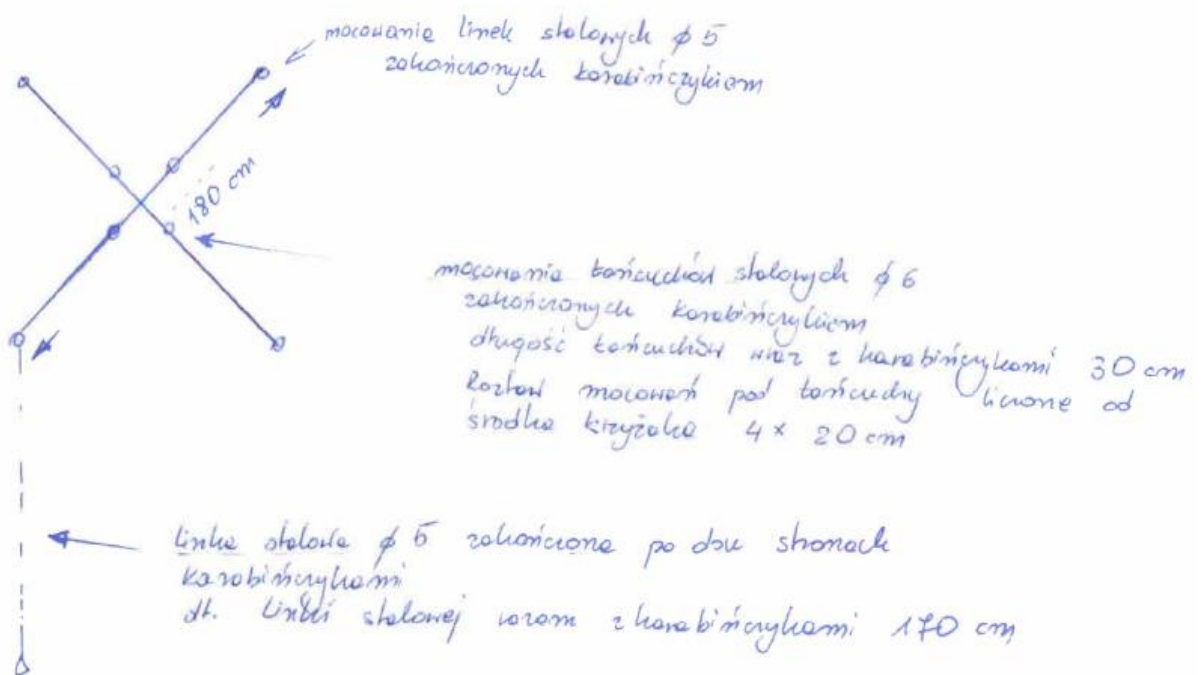 mocowanie linek stalowych φ 5
zakończonych karabińczykiem
180 cm
mocowanie łańcuchów stalowych φ 6
zakończonych karabińczykiem
długość łańcuchów wraz z karabińczykami 30 cm
Rozstaw mocowań pod łańcuchy liczone od
środka krzyżaka 4 x 20 cm
linka stalowa φ 5 zakończona po dwu stronach
karabińczykami
dł. linki stalowej wraz z karabińczykami 170 cm